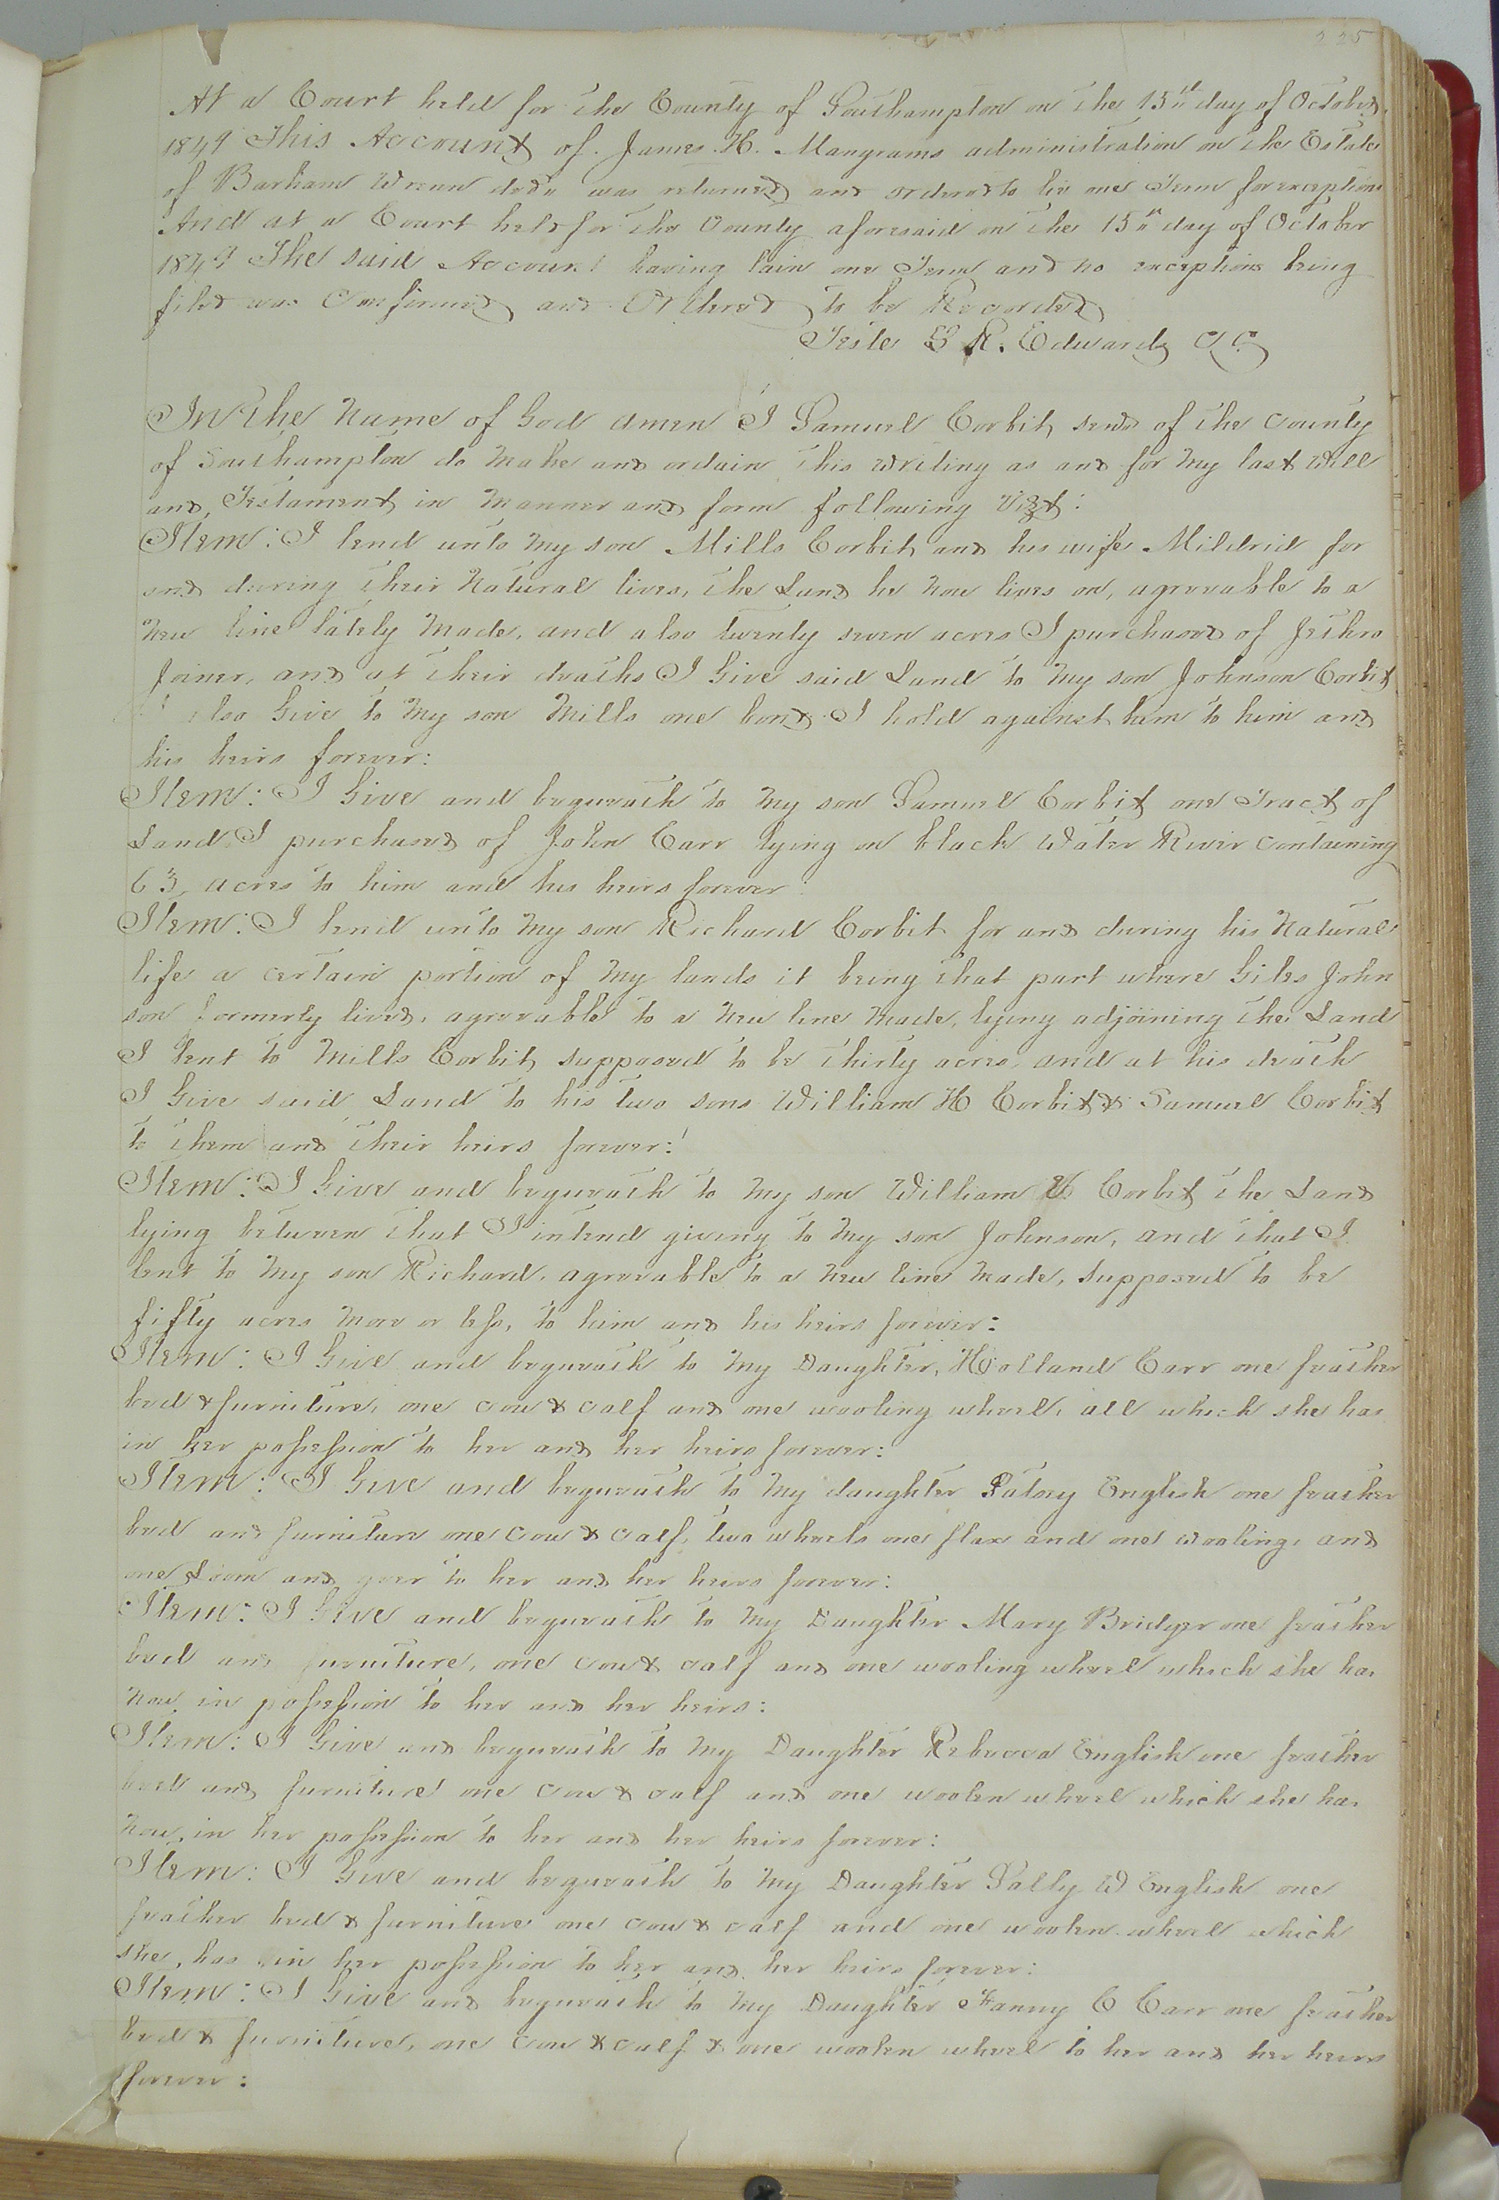 225
At a Court held for the County of Southampton on the 15th day of October
1849 This Account of James H. Mangrams administration on the Estate
of Barham Wrenn decd was returned and ordered to lie one Term for exceptions
And at a Court held for the County aforesaid on the 15th day of October
1849 The said Account having lain one Term and no exceptions being
filed was Confirmed and Ordered to be Recorded
Teste L R. Edwards CC
In The Name of God amen I Samuel Corbit, senr of the County
of Southampton do make and ordain this writing as and for my last will
and, Testament in manner and form following Vizt:
Item: I lend unto my son Mills Corbit, and his wife Mildrid for
and during their Natural lives, the Land he now lives on, agreeable to a
new line lately made, and also twenty seven acres I purchased of Jethro
Joiner, and at their deaths I Give said Land to my son Johnson Corbit
I also Give to my son Mills one bond I hold against him to him and
his heirs forever:
Item: I Give and bequeath to my son Samuel Corbit one Tract of
Land I purchased of John Carr lying on black Water River containing
63, acres to him and his heirs forever:
Item: I lend unto my son Richard Corbit for and during his Natural
life a certain portion of my lands it being that part where Giles John
son formerly lived, agreeable to a new line made, lying adjoining the Land
I lent to Mills Corbit, supposed to be thirty acres, and at his death
I Give said Land to his two sons William H Corbit & Samuel Corbit
to them and their heirs forever:
Item: I Give and bequeath to my son William Corbit the Land
lying between that I intend giving to my son Johnson, and that I
lent to my son Richard, agreeable to a new line made, supposed to be
fifty acres more or less, to him and his heirs forever:
Item: I Give and bequeath to my Daughter, Holland Carr one feather
bed & furniture, one cow & calf and one wooling wheel, all which she has
in her possession to her and her heirs forever:
Item: I Give and bequeath to my daughter Patsey English one feather
bed and furniture one cow & calf, two wheels one flax and one wooling, and
one Loom and geer to her and her heirs forever:
Item: I Give and bequeath to my Daughter Mary Bridger one feather
bed and furniture, one cow & calf and one wooling wheel which she has
now in possession to her and her heirs:
Item: I Give and bequeath to my Daughter Rebecca English one feather
bed and furniture one cow & calf and one woolen wheel which she has
now, in her possession to her and her heirs forever:
Item: I Give and bequeath to my Daughter Sally W English one
feather bed & furniture one cow & calf and one woolen wheel which
she, has in her possession to her and her heirs forever:
Item: I Give and bequeath to my Daughter Fanny C Carr one feather
bed & furniture, one cow & calf & one woolen wheel to her and her heirs
forever: